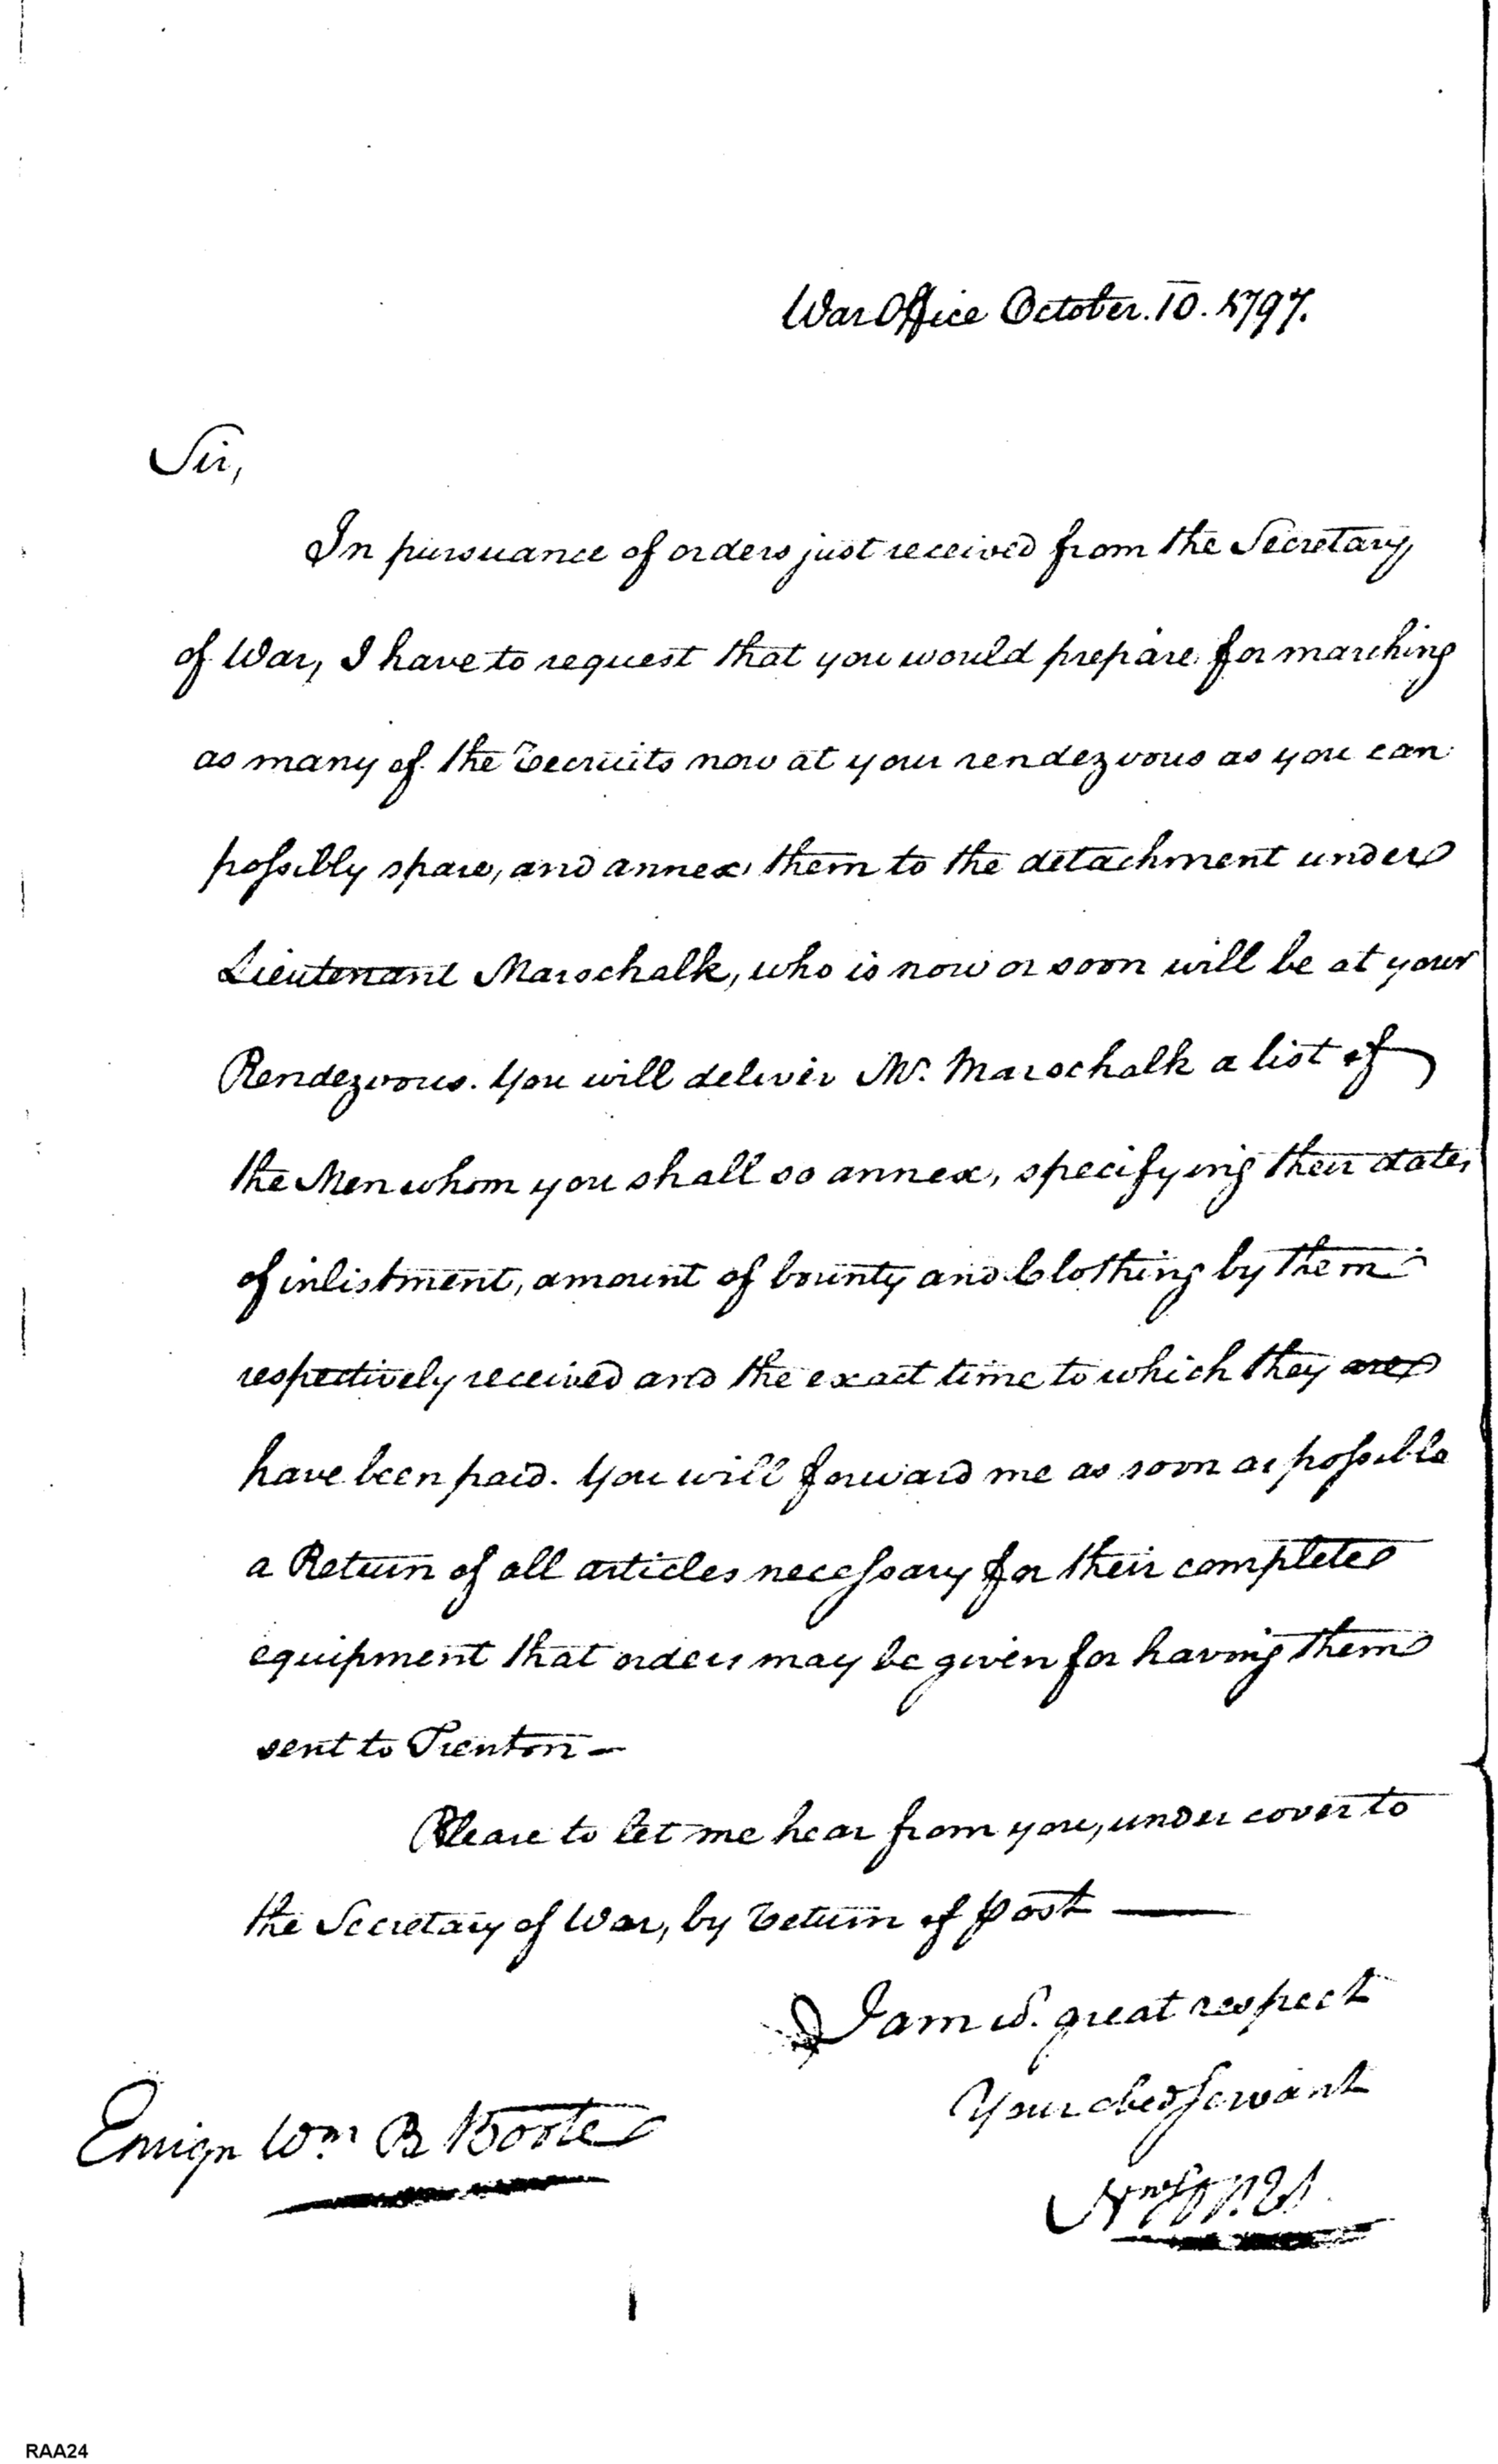 War Office October. 10. 1797.
Sir,
In pursuance of orders just received from the Secretary
of War, I have to request that you would prepare for marching
as many of the recruits now at your rendezvous as you can
possibly spare, and annex them to the detachment under
Lieutenant Marschalk, who is now or soon will be at your
Rendezvous. You will deliver Mr. Marschalk a list of
the Men whom you shall so annex, specifying their dates
of inlistment, amount of bounty and Clothing by them
respectively received and the exact time to which they are
have been paid. You will forward me as soon as possible
a Return of all articles necessary for their complete
equipment that orders may be given for having them
sent to Trenton —
Please to let me hear from you, under cover to
the Secretary of War, by return of post —
I am w. great respect
Your obed servant
Ensign Wm B Boote
RAA24